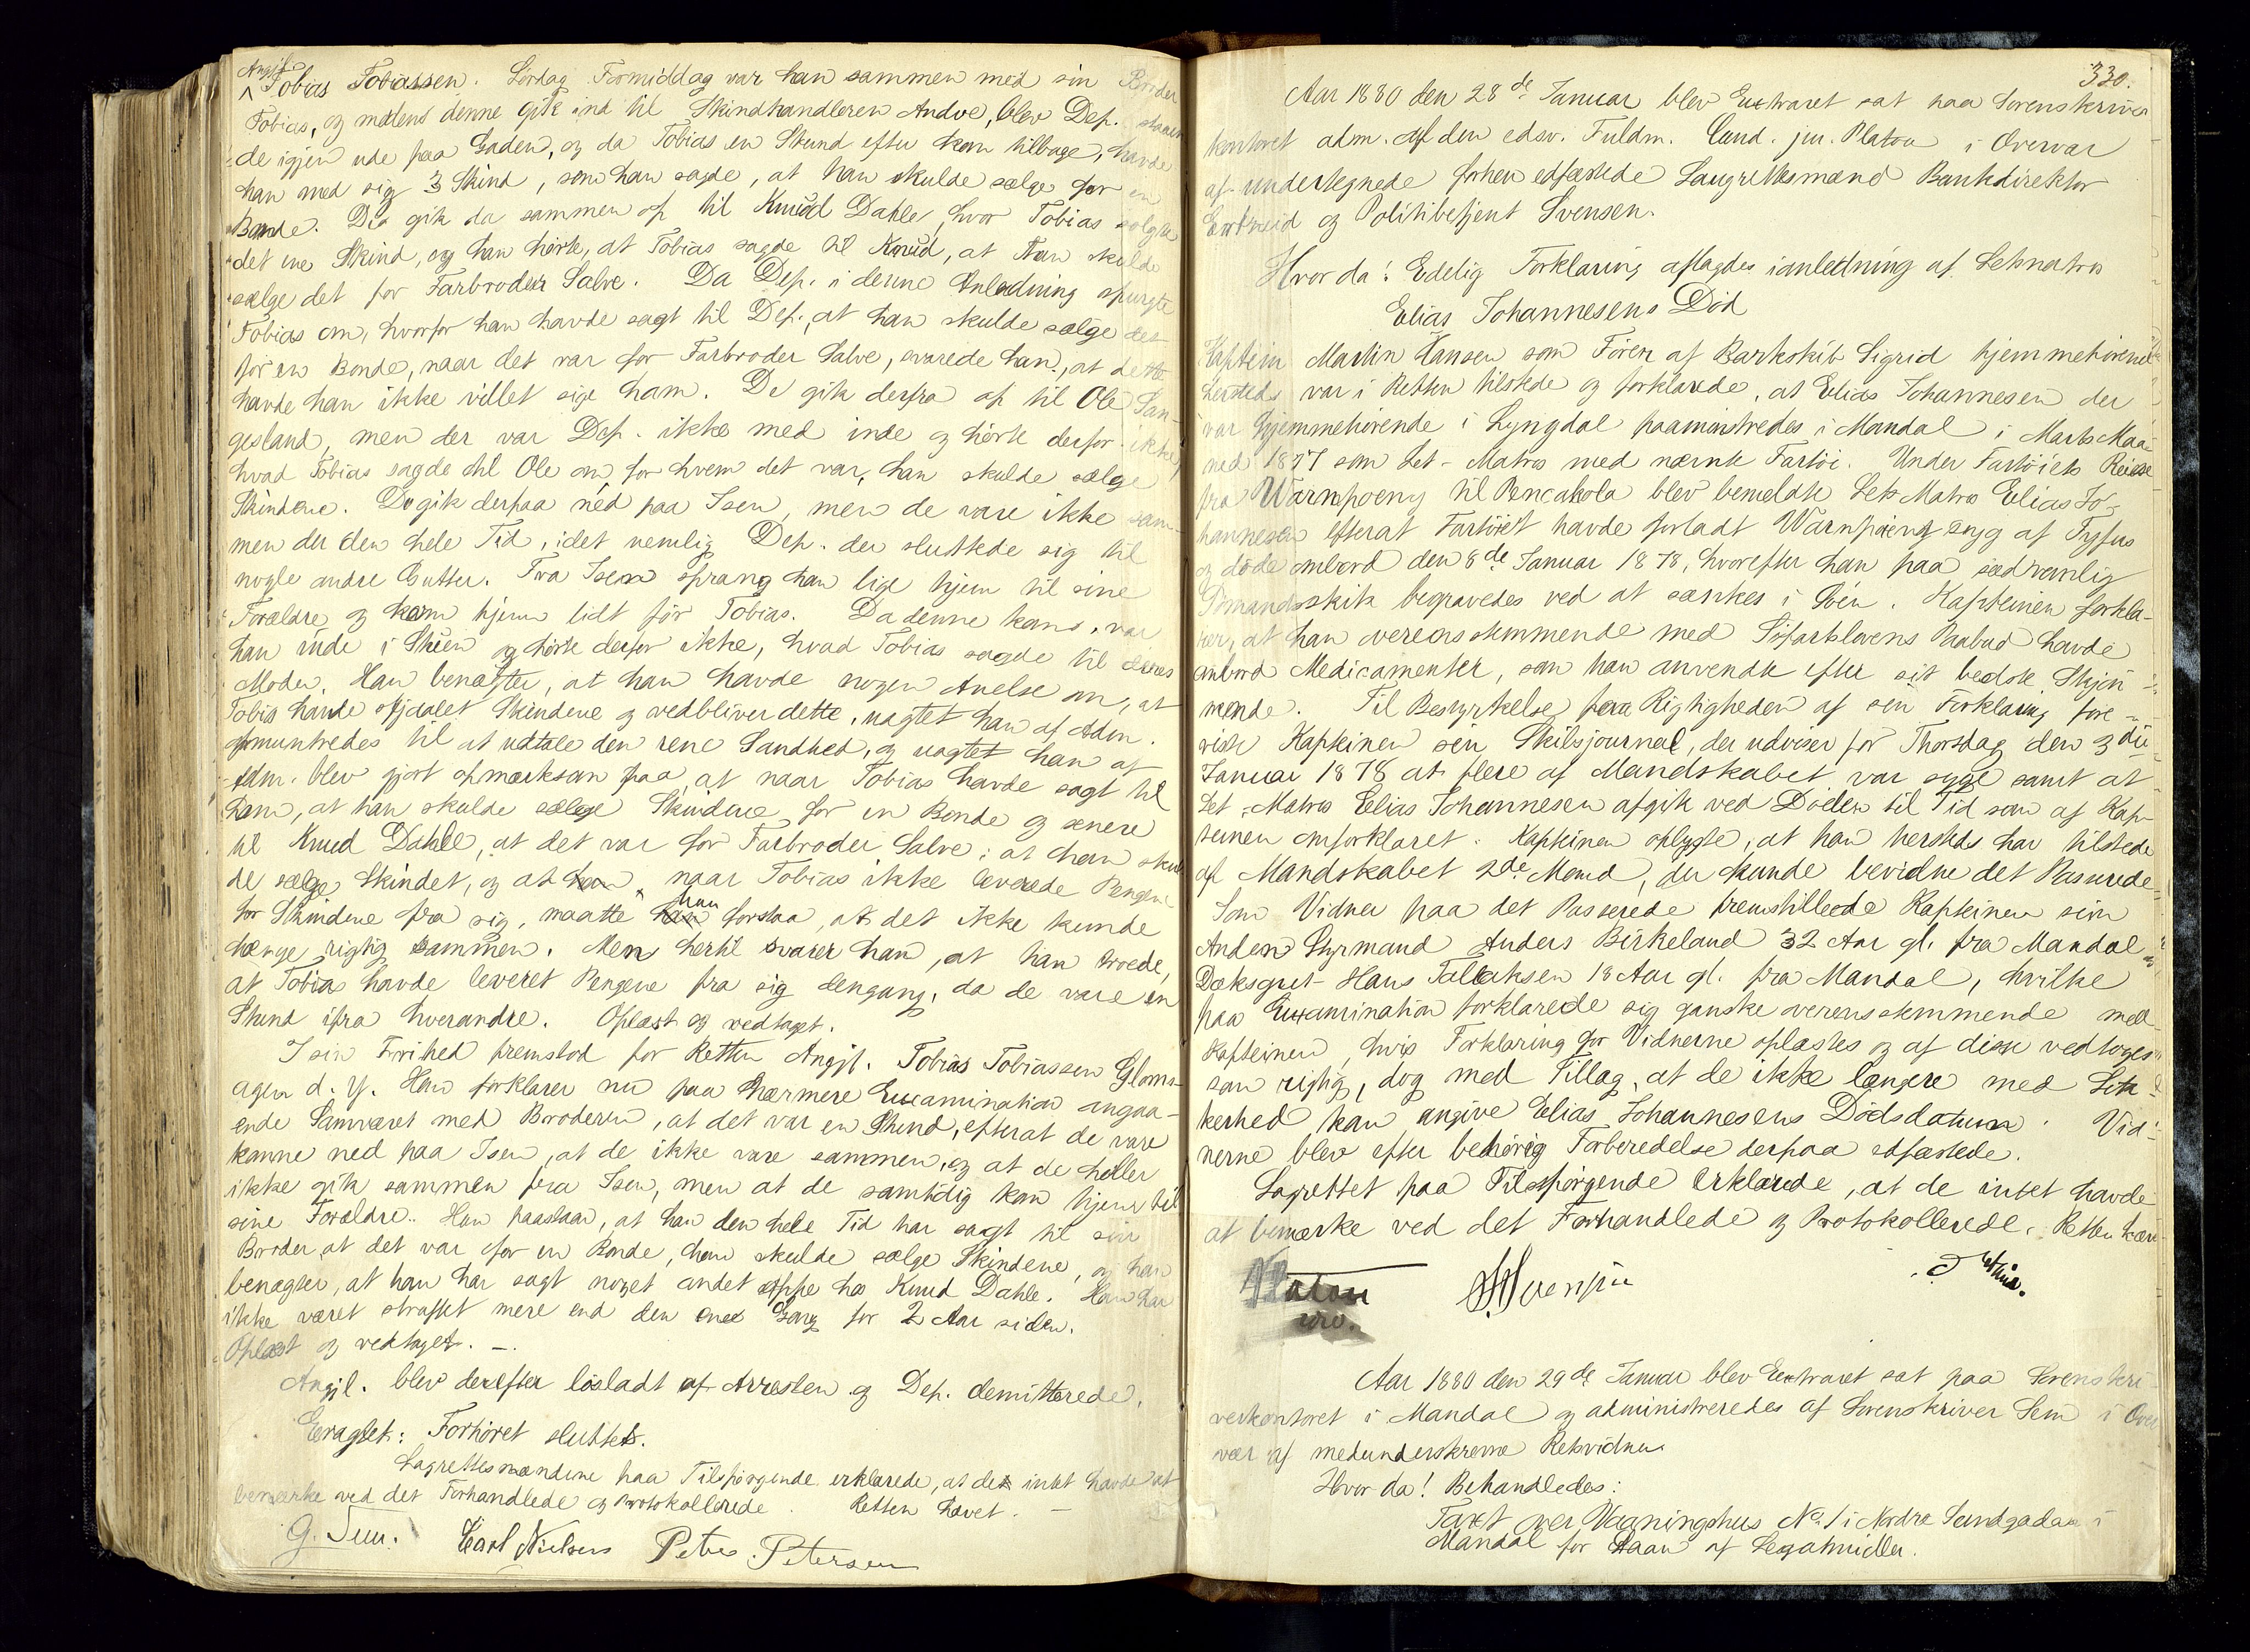 Angjl.
Tobias Tobiassen. Lørdag Formiddag var han sammen med sin Broder
Tobias, og medens denne gik ind til Skindhandleren Andve, blev Dep. staaen-
de igjen ude paa Gaden, og da Tobias en Stund efter kom tilbage, havde
han med sig 3 Skind, som han sagde, at han skulde sælge for en
Bonde. De gik da sammen op til Knud Dahle, hvor Tobias solgte
det ene Skind, og han hørte, at Tobias sagde til Knud, at han skulde
sælge det for Farbroder Salve. Da Dep. i denne Anledning spurgte
Tobias om, hvorfor han havde sagt til Dep., at han skulde sælge det
for en Bonde, naar det var for Farbroder Salve, svarede han, at dette
havde han ikke villet sige ham. De gik derfra op til Ole San-
gesland, men der var Dep. ikke med inde og hørte derfor ikke,
hvad Tobias sagde til Ole om, for hvem det var, han skulde sælge
Skindene. De gik derpaa ned paa Isen, men de vare ikke sam-
men der den hele Tid, idet nemlig Dep. der sluttede sig til
nogle andre Gutter. Fra Isen sprang han lige hjem til sine
Forældre og kom hjem lidt før Tobias. Da denne kom, var
han inde i Stuen og hørte derfor ikke, hvad Tobias sagde til deres
Moder. Han benægter, at han havde nogen Anelse om, at
Tobis havde stjaalet Skindene og vedbliver dette, uagtet han af Adm.
opmuntredes til at udtale den rene Sandhed, og uagtet han af
Adm. blev gjort opmærksom paa, at naar Tobias havde sagt til
ham, at han skulde sælge Skindene for en Bonde og senere
til Knud Dahle, at det var for Farbroder Salve, at han skul
de sælge Skindet, og at han naar Tobias ikke leverede Pengene
for Skindene fra sig, maatte han forstaa, at det ikke kunde
hænge rigtig sammen. Men hertil svarer han, at han troede,
at Tobias havde leveret Pengene fra sig dengang, da de vare en
Stund ifra hverandre. Oplæst og vedtaget.
I sin Frihed fremstod for Retten Angjl. Tobias Tobiassen Gloms-
agen d. Y. Han forklarer nu paa nærmere Examination angaa-
ende Samværet med Broderen, at det var en Stund, efterat de vare
komne ned paa Isen, at de ikke vare sammen, og at de heller
ikke gik sammen fra Isen, men at de samtidig kom hjem til
sine Forældre. Han paastaar, at han den hele Tid har sagt til sin
Broder, at det var for en Bonde, han skulde sælge Skindene, og han
benægter, at han har sagt noget andet oppe hos Knud Dahle. Han har
ikke været straffet mere end den ene Gang for 2 Aar siden.
Oplæst og vedtaget. —.
Angjl. blev derefter løsladt af Arresten og Dep. demitterede.
Eragtet: Forhøret sluttet.
Lagrettesmændene paa Tilspørgende erklærede, at de intet havde at
bemærke ved det Forhandlede og Protokollerede. Retten hævet. —
G. Sem. Carl Nielsen Peter Petersen
330.
Aar 1880 den 28de Januar blev Extraret sat paa Sorenskriver
kontoret adm. af den edsv. Fuldm. Cand. jur. Platou i Overvær
af undertegnede forhen edfæstede Laugrettesmænd Bankdirektør
og Politibetjent Svensen.
Hvor da! Edelig Forklaring aflagdes i anledning af Letmatros
Elias Johannesens Död
Kaptein Martin Hansen som Förer af Barkskib Sigrid hjemmehörende
hersteds var i Retten tilstede og forklarede, at Elias Johannesen der
var hjemmehörende i Lyngdal paamönstredes i Mandal i Marts Maa-
ned 1877 som Let-Matros med nævnte Fartöi. Under Fartöiets Reise
fra Warnpoeny til Pencakola blev bemeldte Let Matros Elias Jo-
hannesen efterat Fartöiet havde forladt Warnpoeny syg af Tyfus
og döde ombord den 8de Januar 1878, hvorefter han paa sædvanlig
Sömandsskik begravedes ved at sænkes i Söen. Kapteinen forkla-
rer, at han overensstemmende med Söfartslovens Paabud havde
ombord Medicamenter, som han anvendte efter sit bedste Skjön-
nende. Til Bestyrkelse paa Rigtigheden af sin Forklaring fore-
viste Kapteinen sin Skibsjournal, der udviser for Thorsdag den 3die
Januar 1878 at flere af Mandskabet var syge samt at
Let-Matros Elias Johannesen afgik ved Döden til Tid som af Kap-
teinen omforklaret. Kapteinen oplyste, at han hersteds har tilstede
af Mandskabet 2de Mænd, der kunde bevidne det Passerede.
Som Vidner paa det Passerede fremstillede Kapteinen sin
Anden Styrmand Anders Birkeland 32 Aar gl. fra Mandal og
Dæksgut Hans Tallaksen 18 Aar gl. fra Mandal, hvilke
paa Examination forklarede sig ganske overensstemmende med
Kapteinen, hvis Forklaring for Vidnerne oplæstes og af disse vedtoges
som rigtig, dog med Tillæg, at de ikke længere med Sik-
kerhed kan angive Elias Johannesens Dödsdatum. Vid-
nerne blev efter behörig Forberedelse derpaa edfæstede.
Lagrettet paa Tilspörgende erklærede, at de intet havde
at bemærke ved det Forhandlede og Protokollerede. Retten hæv
Platou
Aar 1880 den 29de Januar blev Extraret sat paa Sorenskri-
verkontoret i Mandal og administreredes af Sorenskriver Sem i Over
vær af medunderskrevne Retsvidner
Hvor da! Behandledes:
Taxt over Vaaningshus No 1 i Nordre Sandgaden i
Mandal for Laan af Legatmidler.